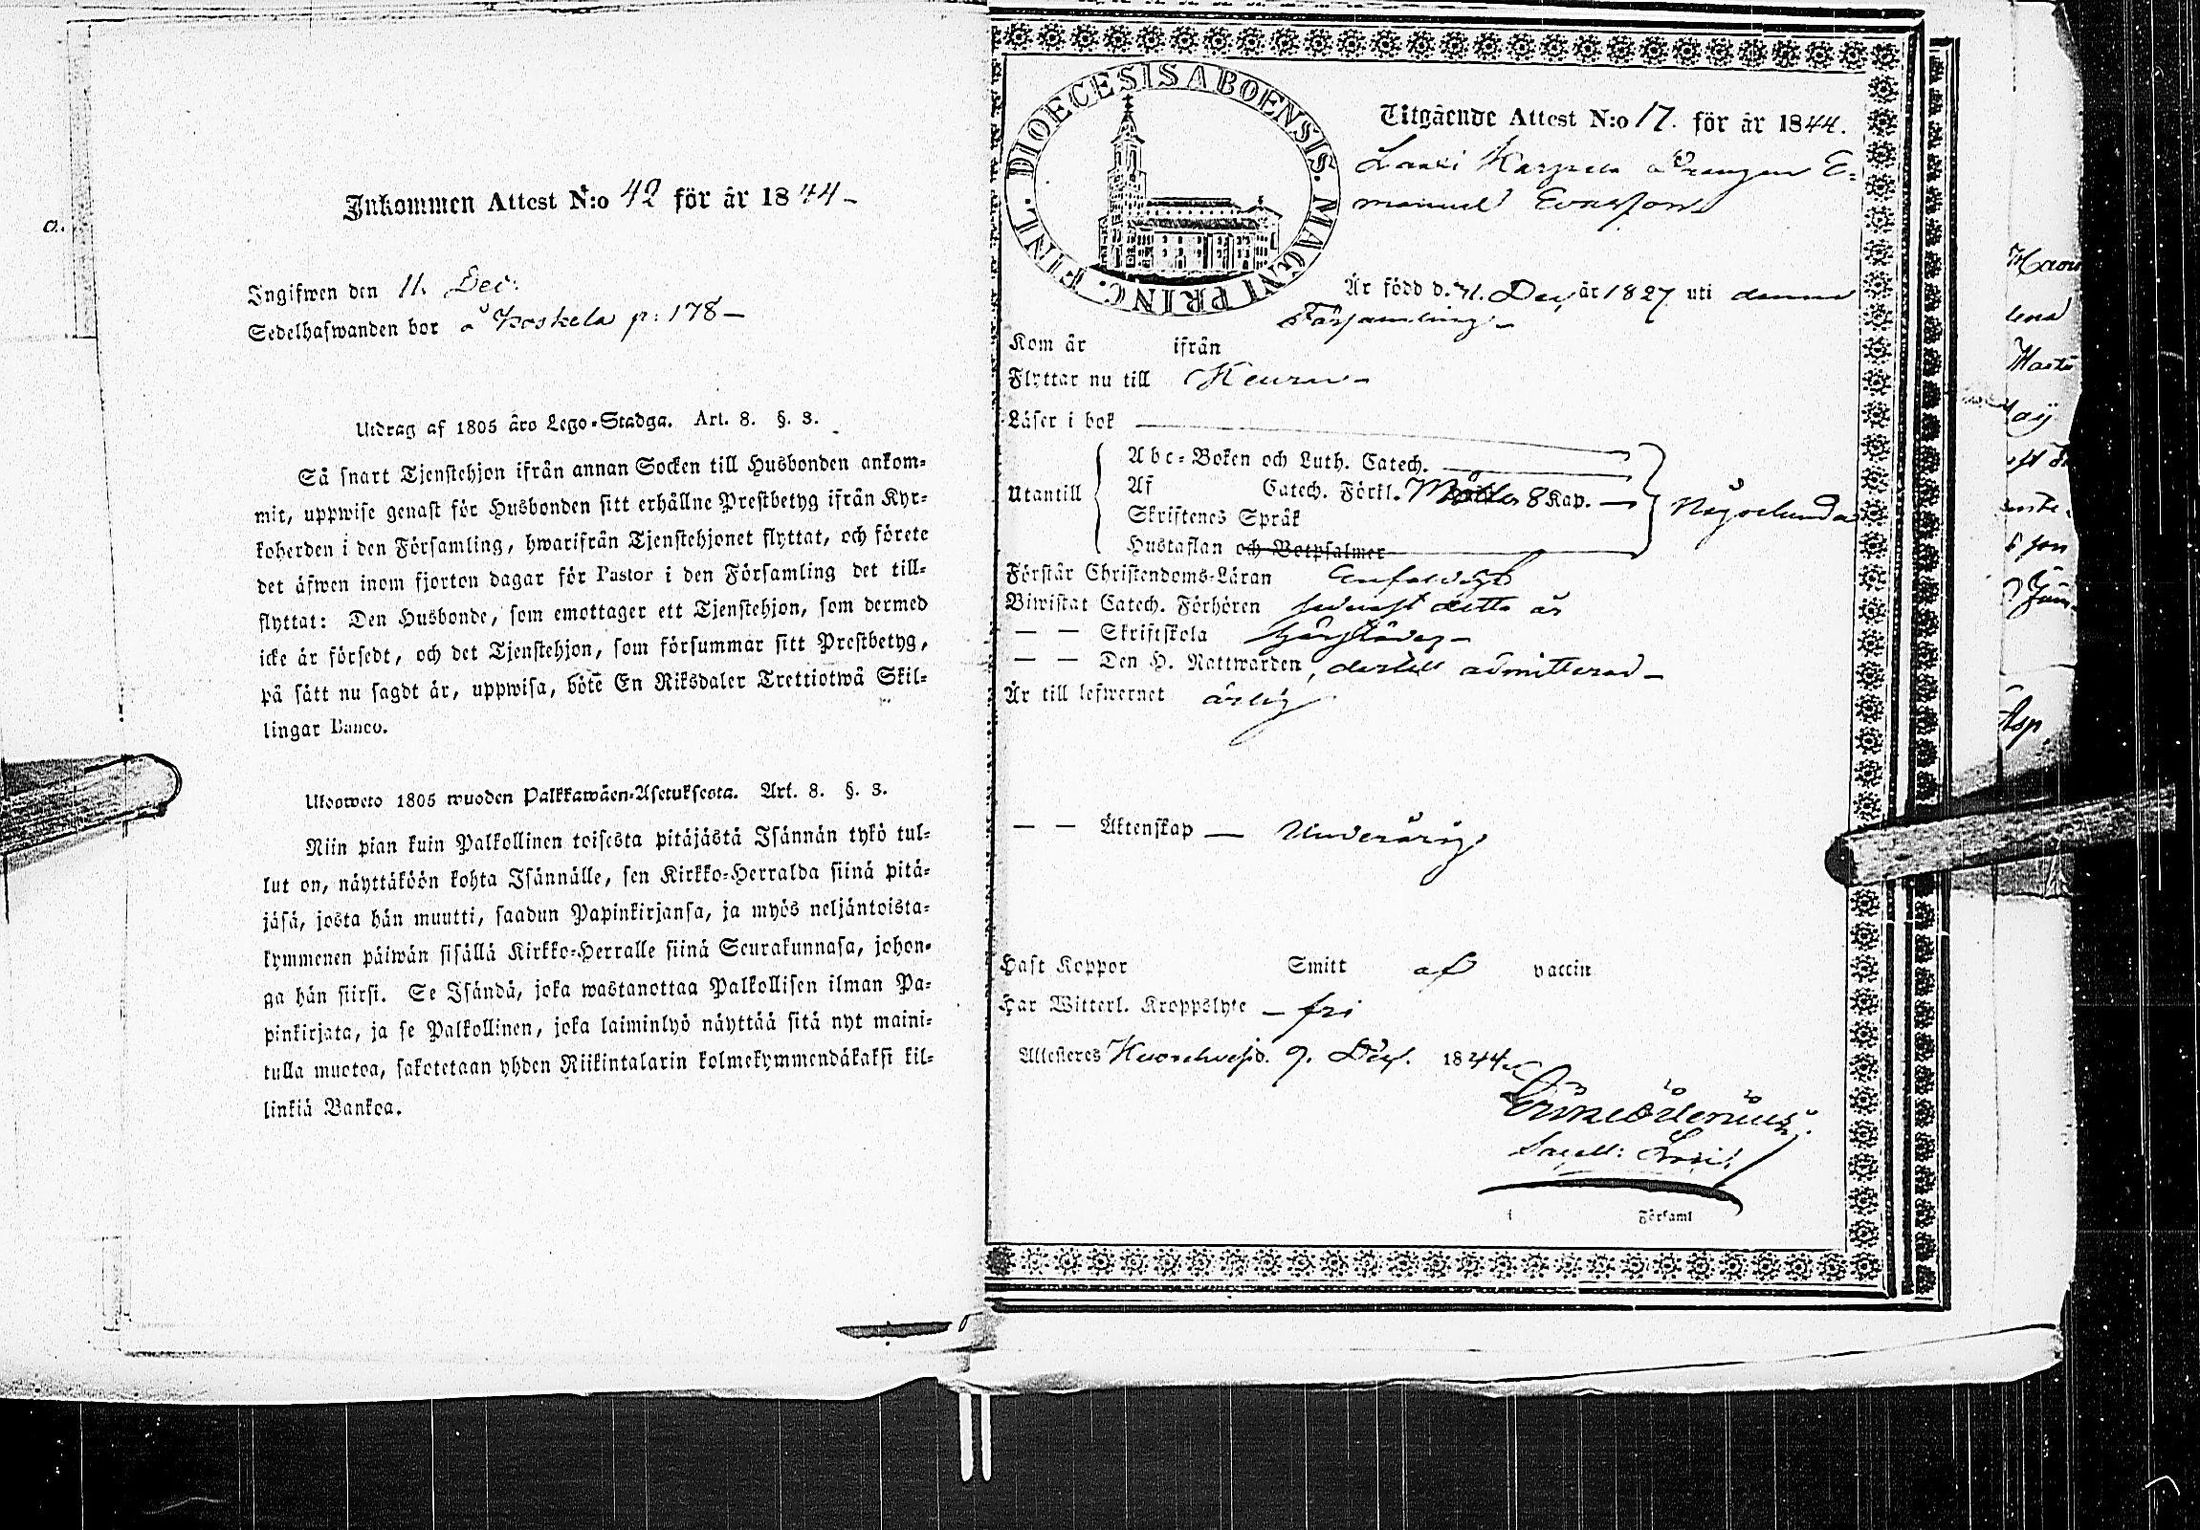 Inkommen Attest N:o 42 för år 1844 -
Ingifwen den 11. Dec:
Sedelhafwanden bor å Koskela p: 178 -
Utdrag af 1805 års Lego-Stadga. Art. 8. §. 3.
Så snart Tjenstehjon ifrån annan Socken till Husbonden ankom-
mit, uppwise genast för Husbonden sitt erhållne Prestbetyg ifrån Kyr-
koherden i den Församling, hwarifrån Tjenstehjonet flyttat, och förete
det äfwen inom fjorton dagar för Pastor i den Församling det till-
flyttat: Den Husbonde, som emottager ett Tjenstehjon, som dermed
icke är försedt, och det Tjenstehjon, som försummar sitt Prestbetyg,
på sätt nu sagdt är, uppwisa, böte En Riksdaler Trettiotwå Skil-
lingar Banco.
Ulosweto 1805 wuoden Palkkawäen-Asetuksesta. Art. 8. §. 3.
Niin pian kuin Palkollinen toisesta pitäjästä Isännän tykö tul-
lut on, näyttäköön kohta Isännälle, sen Kirkko-Herralda siinä pitä-
jäsä, josta hän muutti, saadun Papinkirjansa, ja myös neljäntoista-
kymmenen päiwän sisällä Kirkko-Herralle siinä Seurakunnasa, johon-
ga hän siirsi. Se Isändä, joka wastanottaa Palkollisen ilman Pa-
pinkirjata, ja se Palkollinen, joka laiminlyö näyttää sitä nyt maini-
tulla muotoa, sakotetaan yhden Riikintalarin kolmekymmendäkaksi kil-
linkiä Bankoa.
DIOECESIS ABOENSIS. MAGNI PRINC. FINL.
Utgående Attest N:o 17. för år 1844.
E-
manuel
Är född d. 21. Dec, år 1827 uti denna
Församling -
Kom år ifrån
Flyttar nu till Keuru -
Läser i bok
Abc-Boken och Luth. Catech.
Utantill Af Catech. Förkl. 8 Kap. -
Skriftenes Språk
Hustaflan och Botpsalmer
Någorlunda
Förstår Christendoms-Läran Enfaldigt
Biwistat Catech. Förhören sednast detta år
— — Skriftskola
— — Den H. Nattwarden, dertill admitterad -
Är till lefwernet ärlig
— — Äktenskap — Underårig
Haft Koppor Smitt af vaccin
Har Witterl. Kroppslyte - fri
Attesteras Kuorehvesi d. 9. Dec. 1844
Sacell:
i Församl